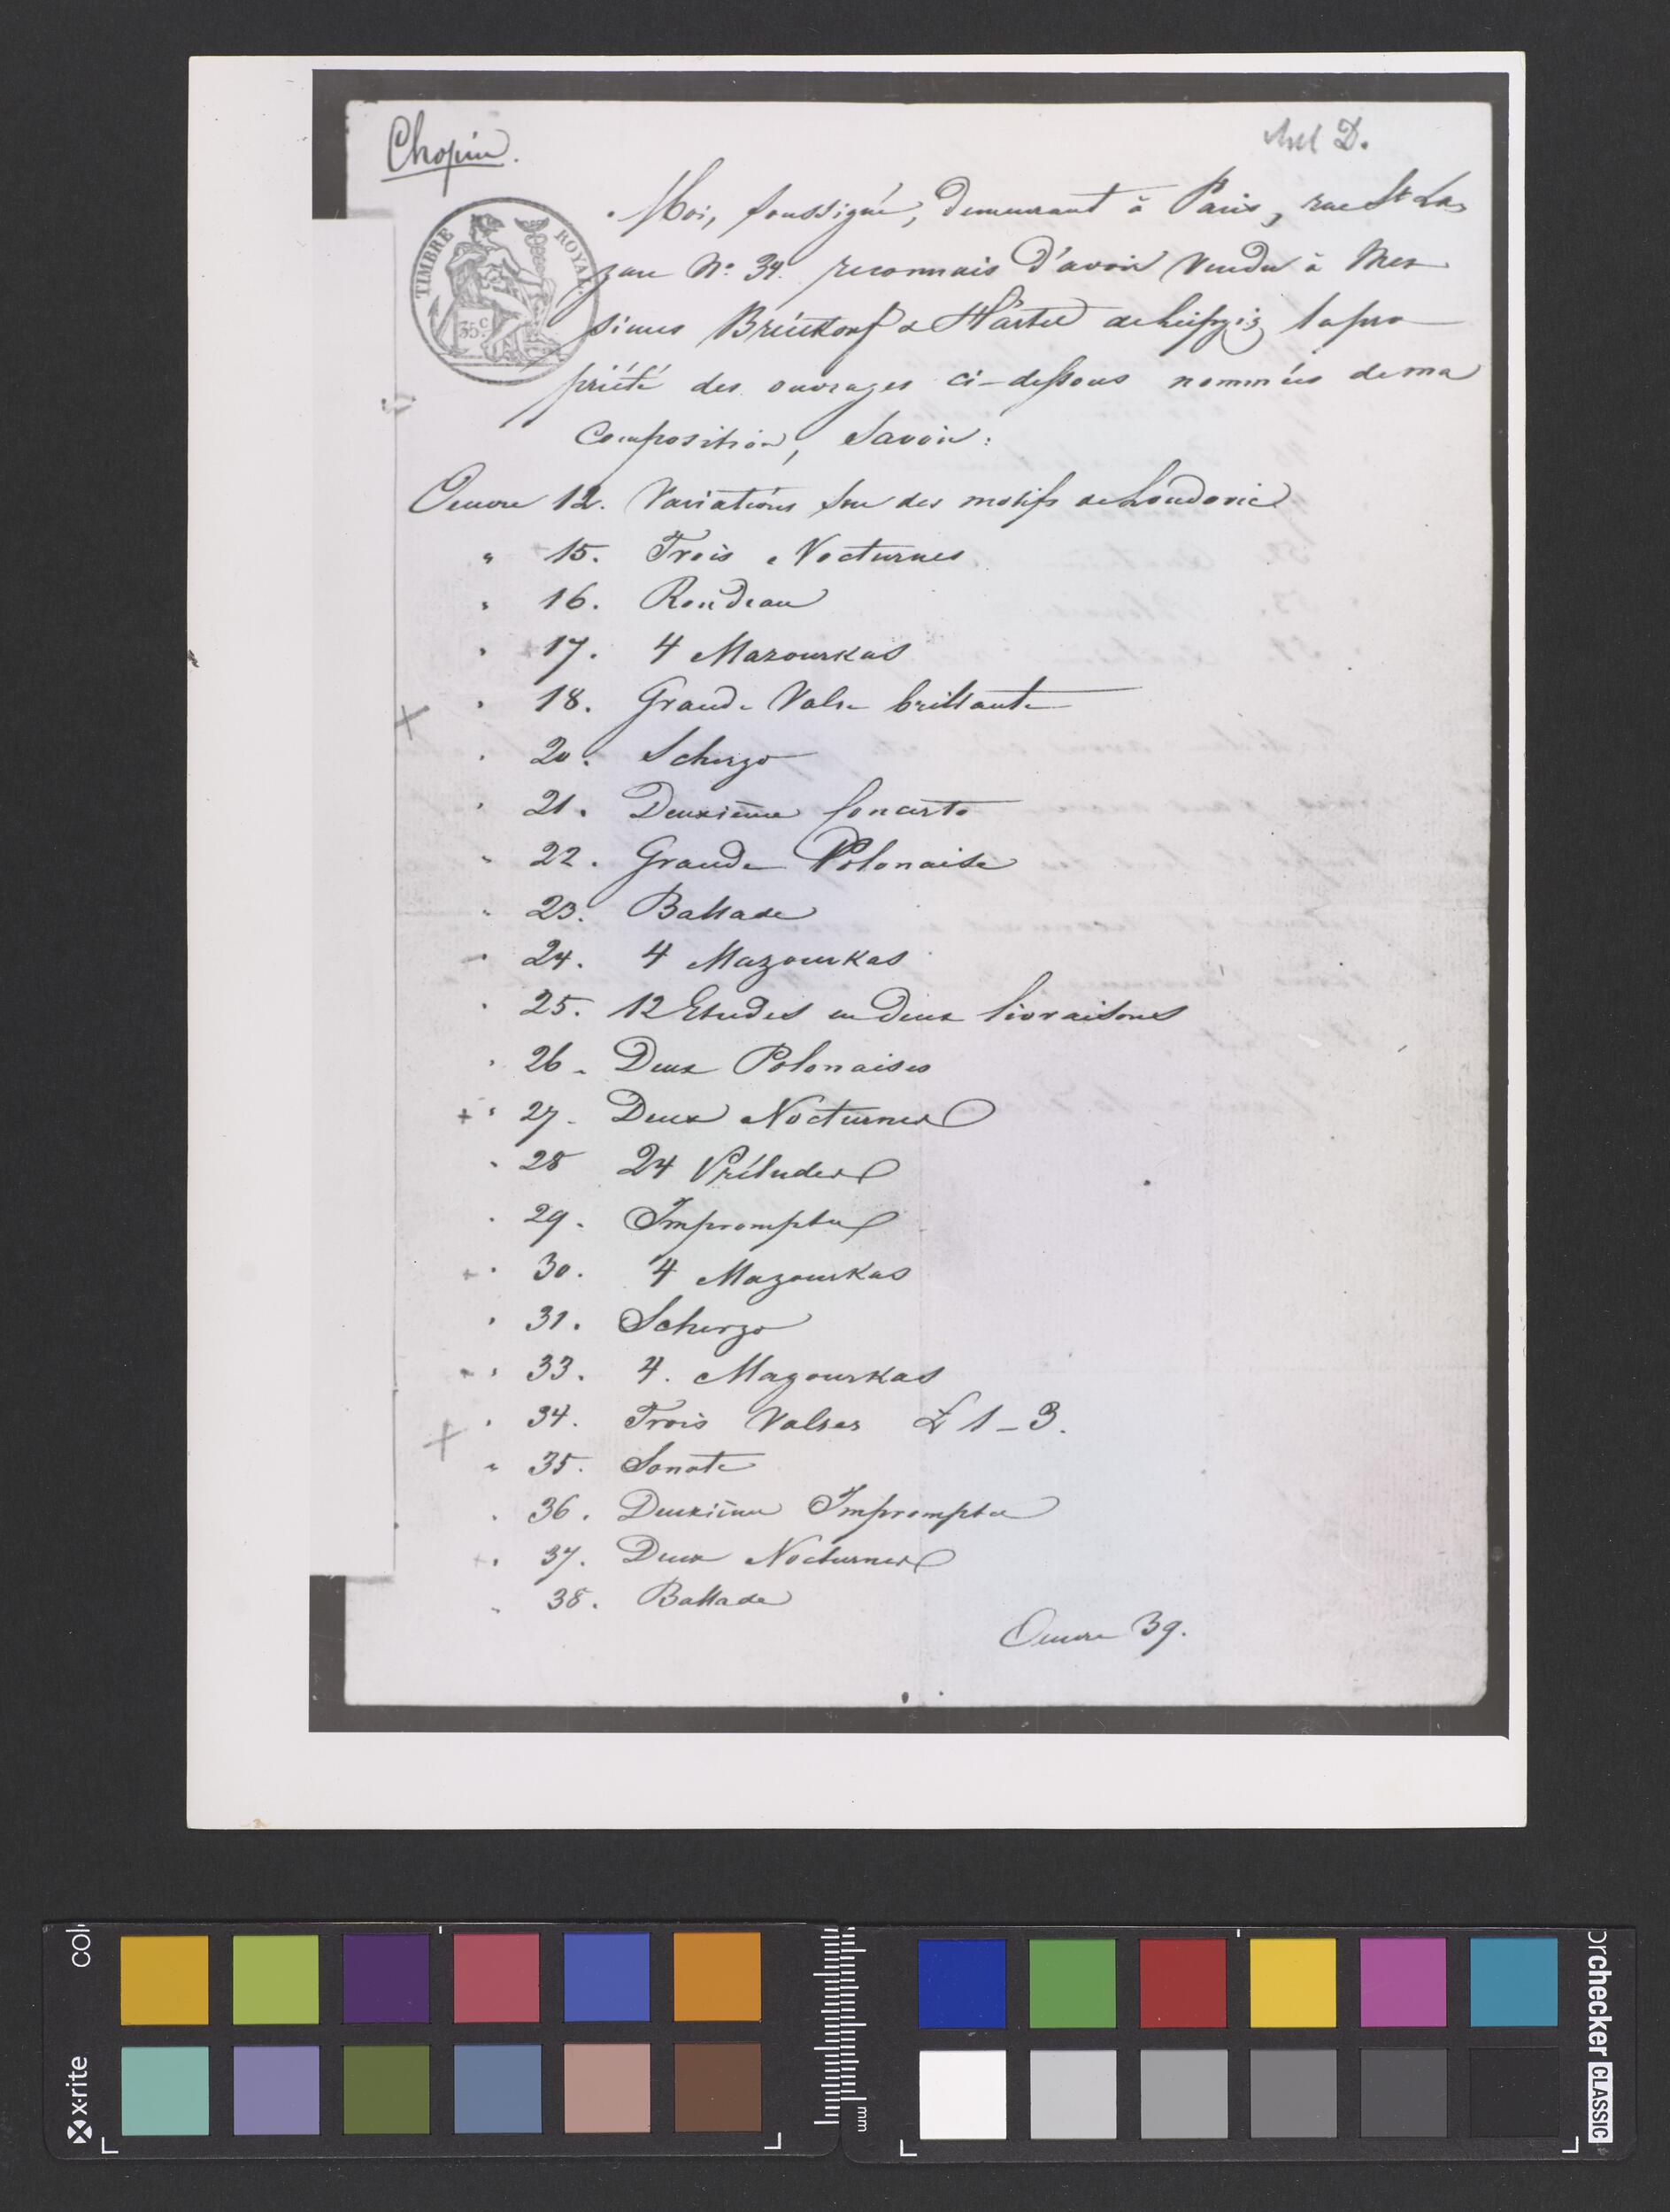 Chopin.
D.
TIMBRE ROYAL.
35c
Moi, soussigné, demeurant à Paris, rue St La
zare No. 34. reconnais d'avoir vendu à Mes
sieurs Breitkopf & Härtel de Leipzig la pro
priété des ouvrages ci-dessous nommés de ma
composition, savoir:
Oeuvre 12. Variations sur des motifs de Loudovic
" 15. Trois Nocturnes
" 16. Rondeau
" 17. 4 Mazourkas
" 18. Grande Valse brillante
" 20. Scherzo
" 21. Deuxième Concerto
" 22. Grande Polonaise
" 23. Ballade
" 24. 4 Mazourkas
" 25. 12 Etudes en deux livraisons
" 26. Deux Polonaises
+ " 27. Deux Nocturnes
" 28 24 Préludes
" 29. Impromptu
+ " 30. 4 Mazourkas
" 31. Scherzo
" 33. 4. Mazourkas
" 34. Trois Valses 1-3.
" 35. Sonate
" 36. Deuxième Impromptu
+ " 37. Deux Nocturnes
" 38. Ballade
Oeuvre 39.
x-rite
col
mm
orchecker CLASSIC